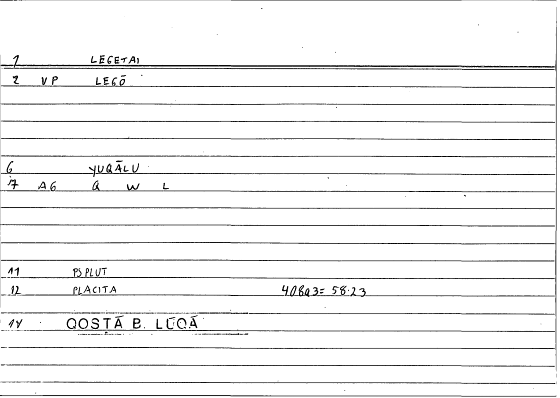 1 LEGETAI
2 VP LEGŌ
6 YUQĀLU
7 AG Q W L
11 PSPLUT
12 PLACITA 408a3= 58.23
14 QOSTĀ B. LŪQĀ